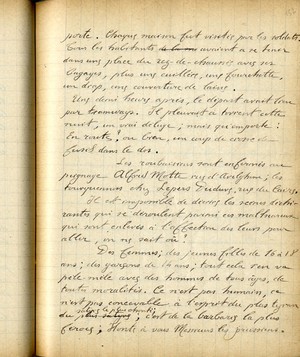 porte. Chaque maison fut visitée par les soldats
Tous les habitants avaient à se tenir
dans une place du rez-de-chaussée avec ses
bagages, plus une cuillère, une fourchette,
un drap, une couverture de laine.
Une demi heure après, le départ avait lieu
par tramways. Il pleuvait à torrent cette
nuit, un vrai déluge; mais qu'importe!
En route! ou Crac, un coup de crosse de
fusil dans le dos.
Les roubaisiens sont enfermés au
peignage Alfred Motte rue d'Avelghem; les
tourquennois chez Lepers Duduve, rue du Caire.
Il est impossible de décrire les scènes déchi-
rantes qui se déroulent parmi ces malheureux
qui sont enlevés à l'affection des leurs pour
aller, on ne sait où!
Des femmes; des jeunes filles de 16 à 18
ans; des garçons de 14 ans; tout cela s'en va
pêle mêle avec des hommes de tous âges, de
toute moralité. Ce n'est pas humain, ce
n'est pas concevable à l'esprit du plus tyran
c'est de la barbarie la plus
féroce; Honte à vous Messieurs les prussiens.